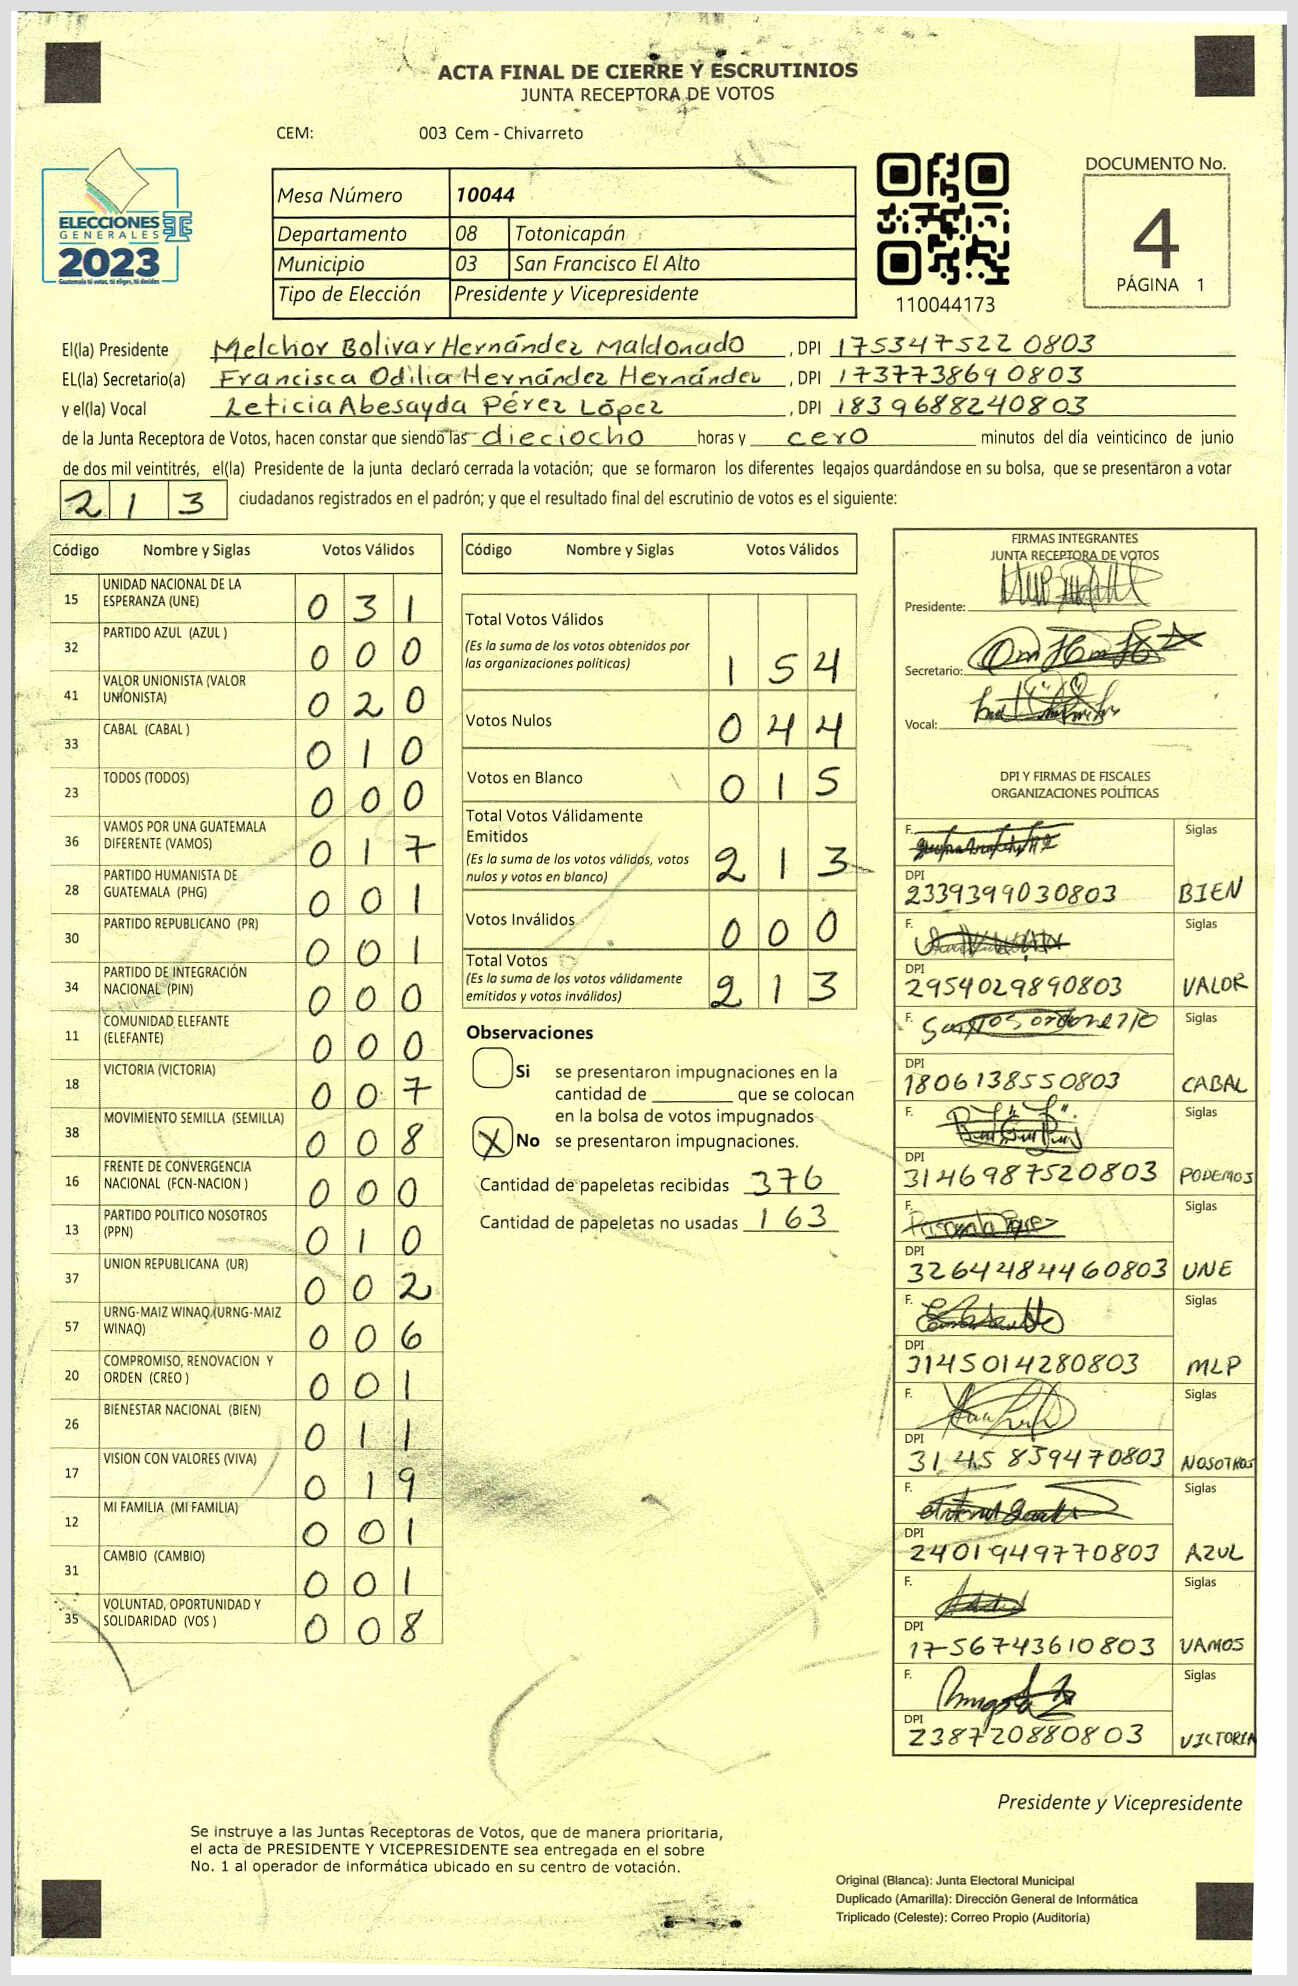 ACTA FINAL DE CIERRE Y ESCRUTINIOS
JUNTA RECEPTORA DE VOTOS
CEM: 003 Cem - Chivarreto
ELECCIONES
GENERALES
TSE
2023
Guatemala tú votas, tú eliges, tú decides
Mesa Número 10044
Departamento 08 Totonicapán
Municipio 03 San Francisco El Alto
Tipo de Elección Presidente y Vicepresidente
110044173
DOCUMENTO No.
4
PÁGINA 1
El(la) Presidente Melchor Bolivar Hernández Maldonado , DPI 175347522 0803
EL(la) Secretario(a) Francisca Odilia Hernández Hernández , DPI 173773869 0803
y el(la) Vocal Leticia Abesayda Pérez López , DPI 1839688240803
de la Junta Receptora de Votos, hacen constar que siendo las dieciocho horas y cero minutos del día veinticinco de junio
de dos mil veintitrés, el(la) Presidente de la junta declaró cerrada la votación; que se formaron los diferentes legajos guardándose en su bolsa, que se presentaron a votar
213 ciudadanos registrados en el padrón; y que el resultado final del escrutinio de votos es el siguiente:
Código Nombre y Siglas Votos Válidos
15 UNIDAD NACIONAL DE LA
ESPERANZA (UNE) 031
32 PARTIDO AZUL (AZUL ) 000
41 VALOR UNIONISTA (VALOR
UNIONISTA) 020
33 CABAL (CABAL ) 010
23 TODOS (TODOS) 000
36 VAMOS POR UNA GUATEMALA
DIFERENTE (VAMOS) 017
28 PARTIDO HUMANISTA DE
GUATEMALA (PHG) 001
30 PARTIDO REPUBLICANO (PR) 001
34 PARTIDO DE INTEGRACIÓN
NACIONAL (PIN) 000
11 COMUNIDAD ELEFANTE
(ELEFANTE) 000
18 VICTORIA (VICTORIA) 007
38 MOVIMIENTO SEMILLA (SEMILLA) 008
16 FRENTE DE CONVERGENCIA
NACIONAL (FCN-NACION ) 000
13 PARTIDO POLITICO NOSOTROS
(PPN) 010
37 UNION REPUBLICANA (UR) 002
57 URNG-MAIZ WINAQ (URNG-MAIZ
WINAQ) 006
20 COMPROMISO, RENOVACION Y
ORDEN (CREO ) 001
26 BIENESTAR NACIONAL (BIEN) 011
17 VISION CON VALORES (VIVA) 019
12 MI FAMILIA (MI FAMILIA) 001
31 CAMBIO (CAMBIO) 001
35 VOLUNTAD, OPORTUNIDAD Y
SOLIDARIDAD (VOS ) 008
Código Nombre y Siglas Votos Válidos
Total Votos Válidos
(Es la suma de los votos obtenidos por
las organizaciones políticas) 154
Votos Nulos 044
Votos en Blanco 015
Total Votos Válidamente
Emitidos
(Es la suma de los votos válidos, votos
nulos y votos en blanco) 213
Votos Inválidos 000
Total Votos
(Es la suma de los votos válidamente
emitidos y votos inválidos) 213
Observaciones
Si se presentaron impugnaciones en la
cantidad de ________ que se colocan
en la bolsa de votos impugnados
X No se presentaron impugnaciones.
Cantidad de papeletas recibidas 376
Cantidad de papeletas no usadas 163
FIRMAS INTEGRANTES
JUNTA RECEPTORA DE VOTOS
Presidente:
Secretario:
Vocal:
DPI Y FIRMAS DE FISCALES
ORGANIZACIONES POLÍTICAS
F. Siglas
DPI
2339399030803 BIEN
F. Siglas
DPI
2954029890803 VALOR
F. Siglas
DPI
1806138550803 CABAL
F. Siglas
DPI
3146987520803 PODEMOS
F. Siglas
DPI
3264484460803 UNE
F. Siglas
DPI
3145014280803 MLP
F. Siglas
DPI
3145 839470803 NOSOTROS
F. Siglas
DPI
2401949770803 AZUL
F. Siglas
DPI
1756743610803 VAMOS
F. Siglas
DPI
238720880803 VICTORIA
Presidente y Vicepresidente
Se instruye a las Juntas Receptoras de Votos, que de manera prioritaria,
el acta de PRESIDENTE Y VICEPRESIDENTE sea entregada en el sobre
No. 1 al operador de informática ubicado en su centro de votación.
Original (Blanca): Junta Electoral Municipal
Duplicado (Amarilla): Dirección General de Informática
Triplicado (Celeste): Correo Propio (Auditoría)